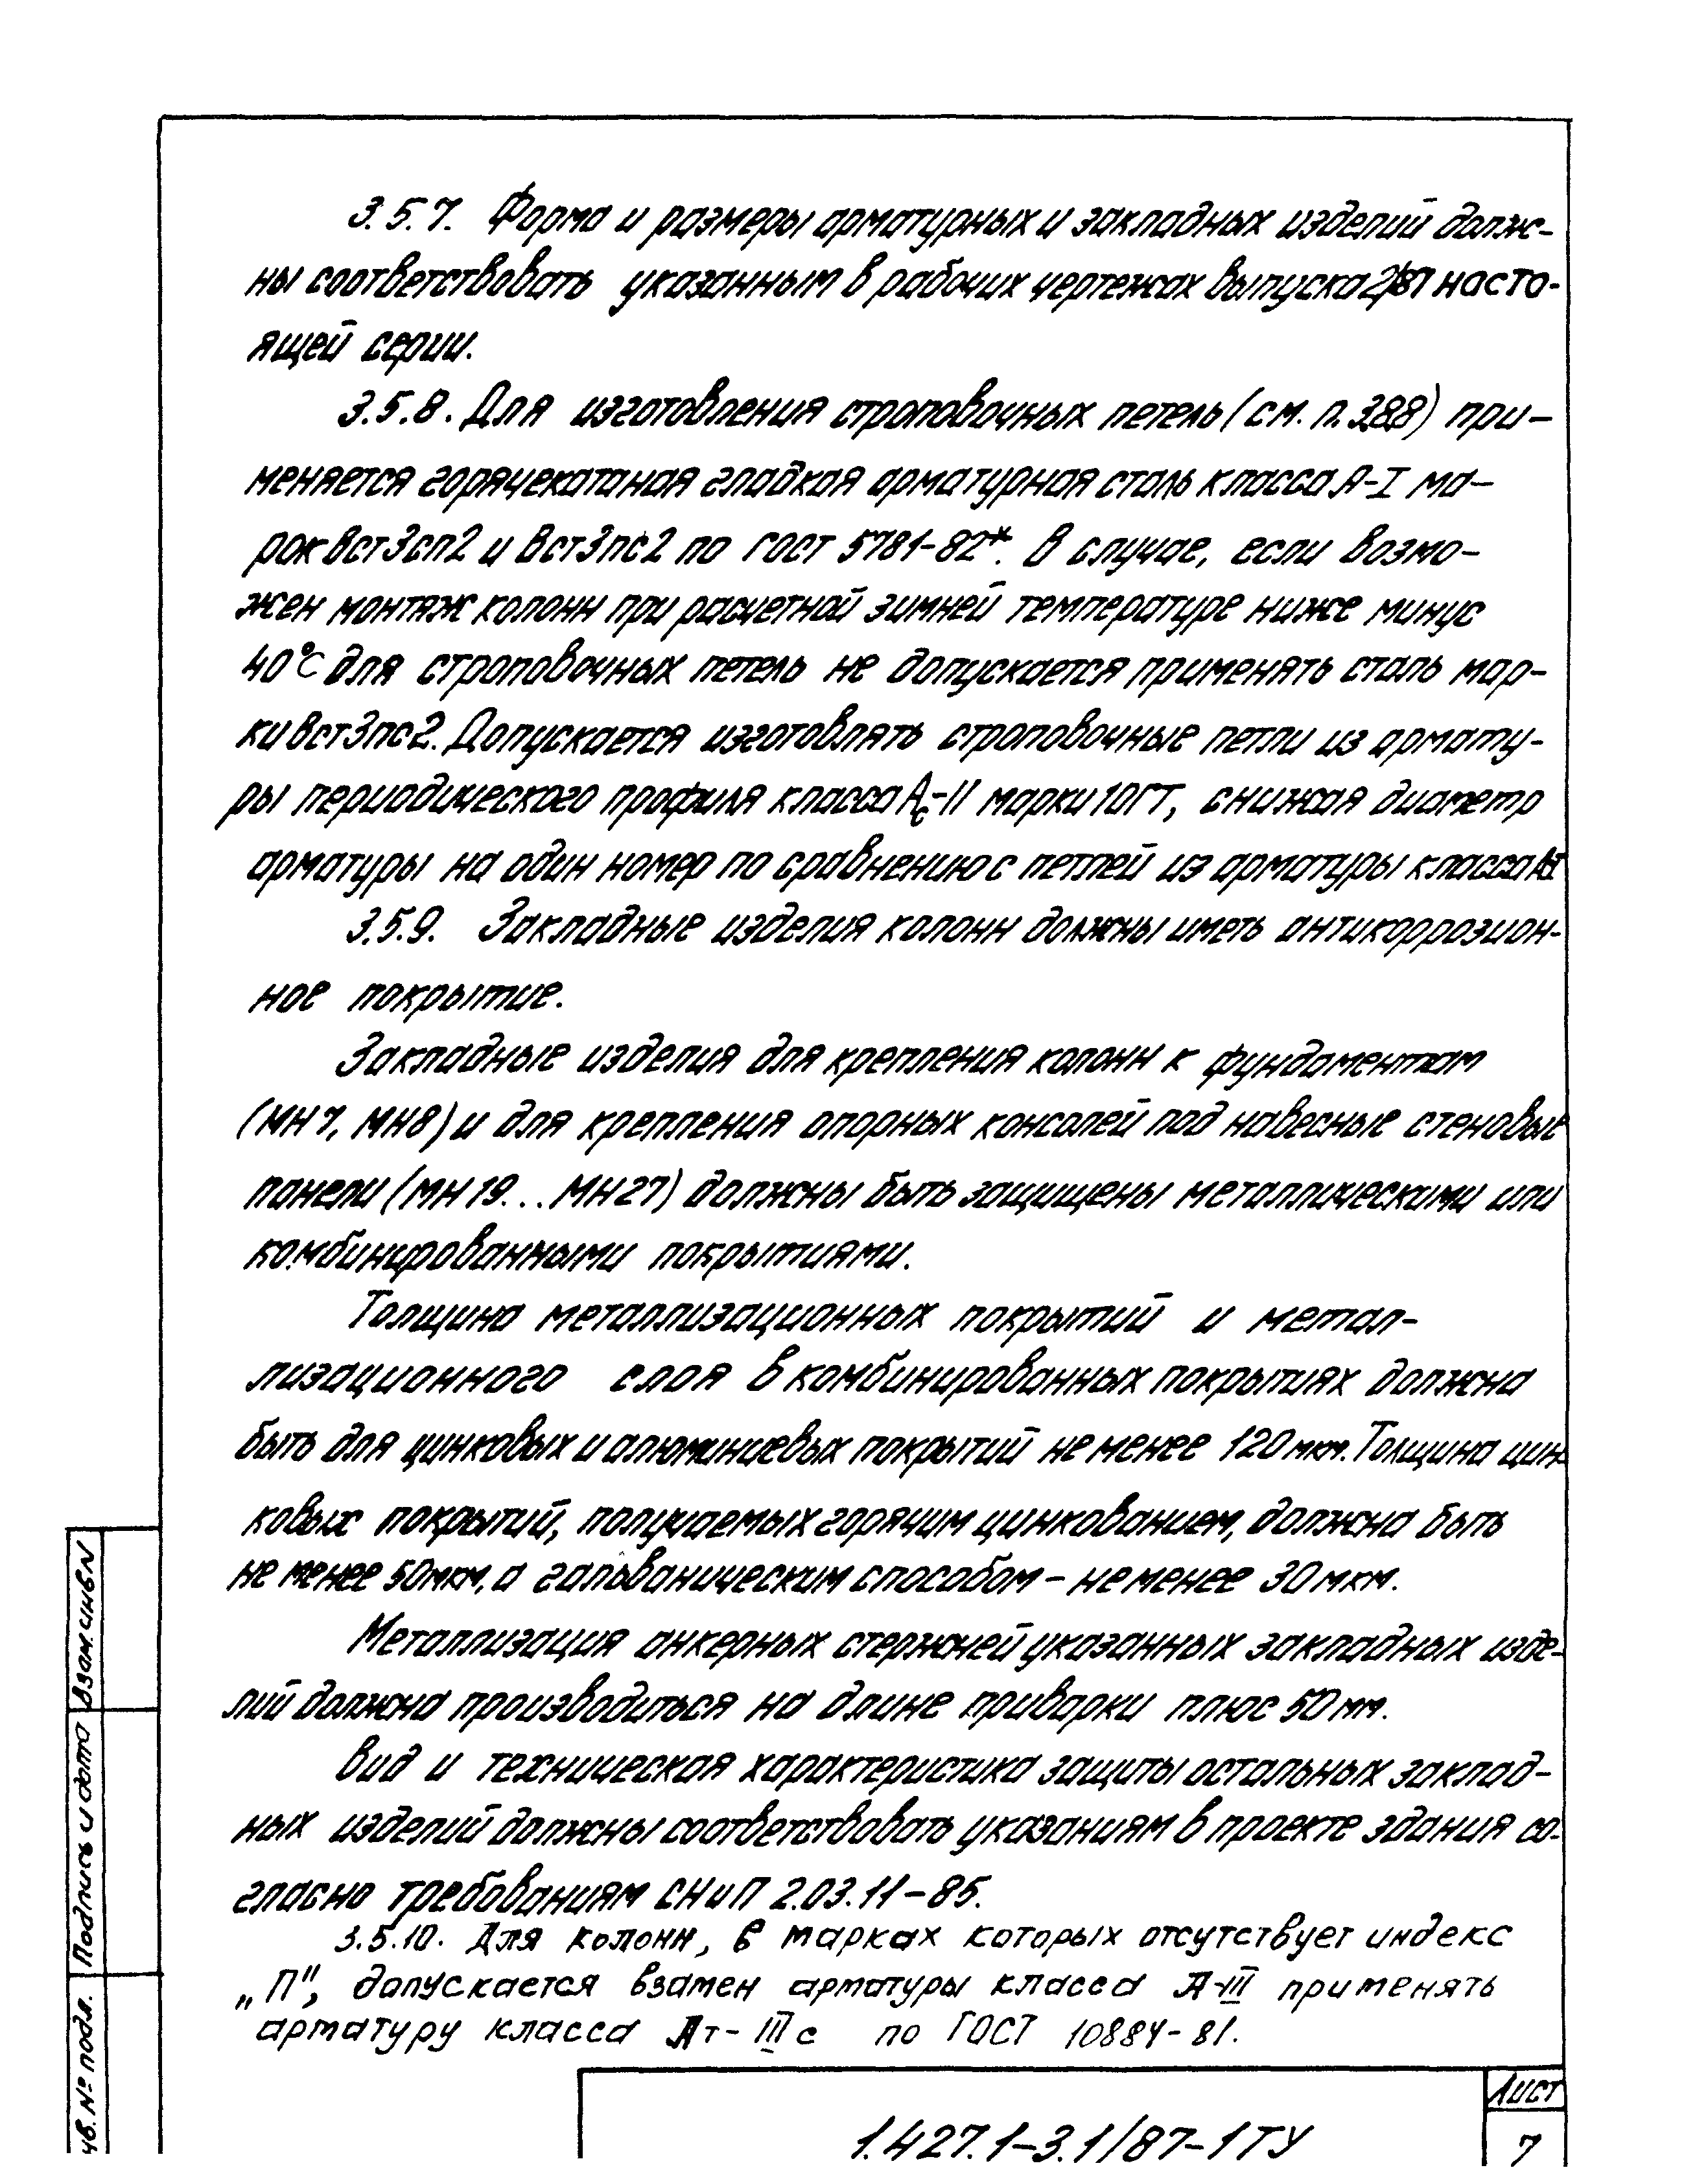 3.5.7. Форма и размеры арматурных и закладных изделий долж-
ны соответствовать указанным в рабочих чертежах выпуска 2/87 насто-
ящей серии.
3.5.8. Для изготовления строповочных петель (см. п. 3.8.8) при-
меняется горячекатаная гладкая арматурная сталь класса А-I ма-
рок Вст3сп2 и Вст3пс2 по ГОСТ 5781-82*. В случае, если возмо-
жен монтаж колонн при расчетной зимней температуре ниже минус
40°С для строповочных петель не допускается применять сталь мар-
ки Вст3пс2. Допускается изготовлять строповочные петли из армату-
ры периодического профиля класса Ас-II марки 10ГТ, снижая диаметр
арматуры на один номер по сравнению с петлей из арматуры класса А-I
3.5.9. Закладные изделия колонн должны иметь антикоррозион-
ное покрытие.
Закладные изделия для крепления колонн к фундаментам
(МН7, МН8) и для крепления опорных консолей под навесные стеновые
панели (МН19...МН27) должны быть защищены металлическими или
комбинированными покрытиями.
Толщина металлизационных покрытий и метал-
лизационного слоя в комбинированных покрытиях должна
быть для цинковых и алюминиевых покрытий не менее 120 мкм. Толщина цин-
ковых покрытий, получаемых горячим цинкованием, должна быть
не менее 50мкм, а гальваническим способом - не менее 30 мкм.
Металлизация анкерных стержней указанных закладных изде-
лий должна производиться на длине приварки плюс 50 мм.
Вид и техническая характеристика защиты остальных заклад-
ных изделий должны соответствовать указаниям в проекте здания со-
гласно требованиям СНиП 2.03.11-85.
3.5.10. Для колонн, в марках которых отсутствует индекс
„П", допускается взамен арматуры класса А-III применять
арматуру класса Ат-IIIс по ГОСТ 10884-81.
Взам. инв N
Подпись и дата
нв. № подл.
1.427.1-3.1/87-1ТУ
Лист
7